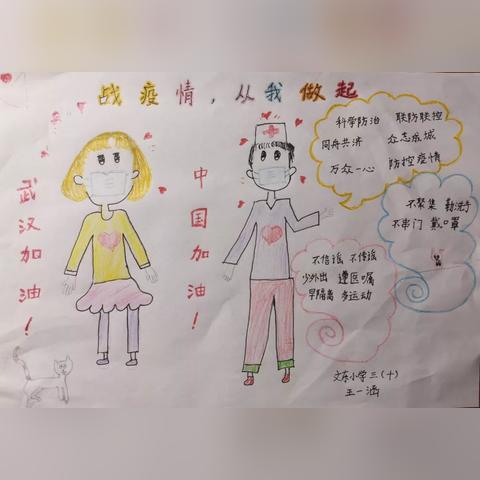 战疫情，从我做起
武汉加油！
中国加油！
科学防治 联防联控
同舟共济 众志成城
万众一心 防控疫情
不聚集 勤洗手
不串门 戴口罩
不信谣 不传谣
少外出 遵医嘱
早隔离 多运动
文东小学三（十）
王一涵